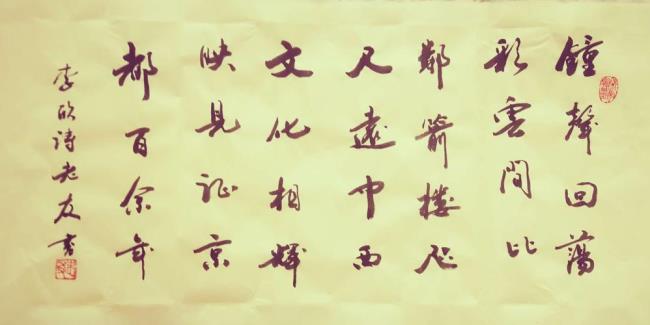 鐘聲回蕩
彩雲間比
鄰箭樓咫
尺遠中西
文化相輝
映見证京
都百余年
李欣诗老友書